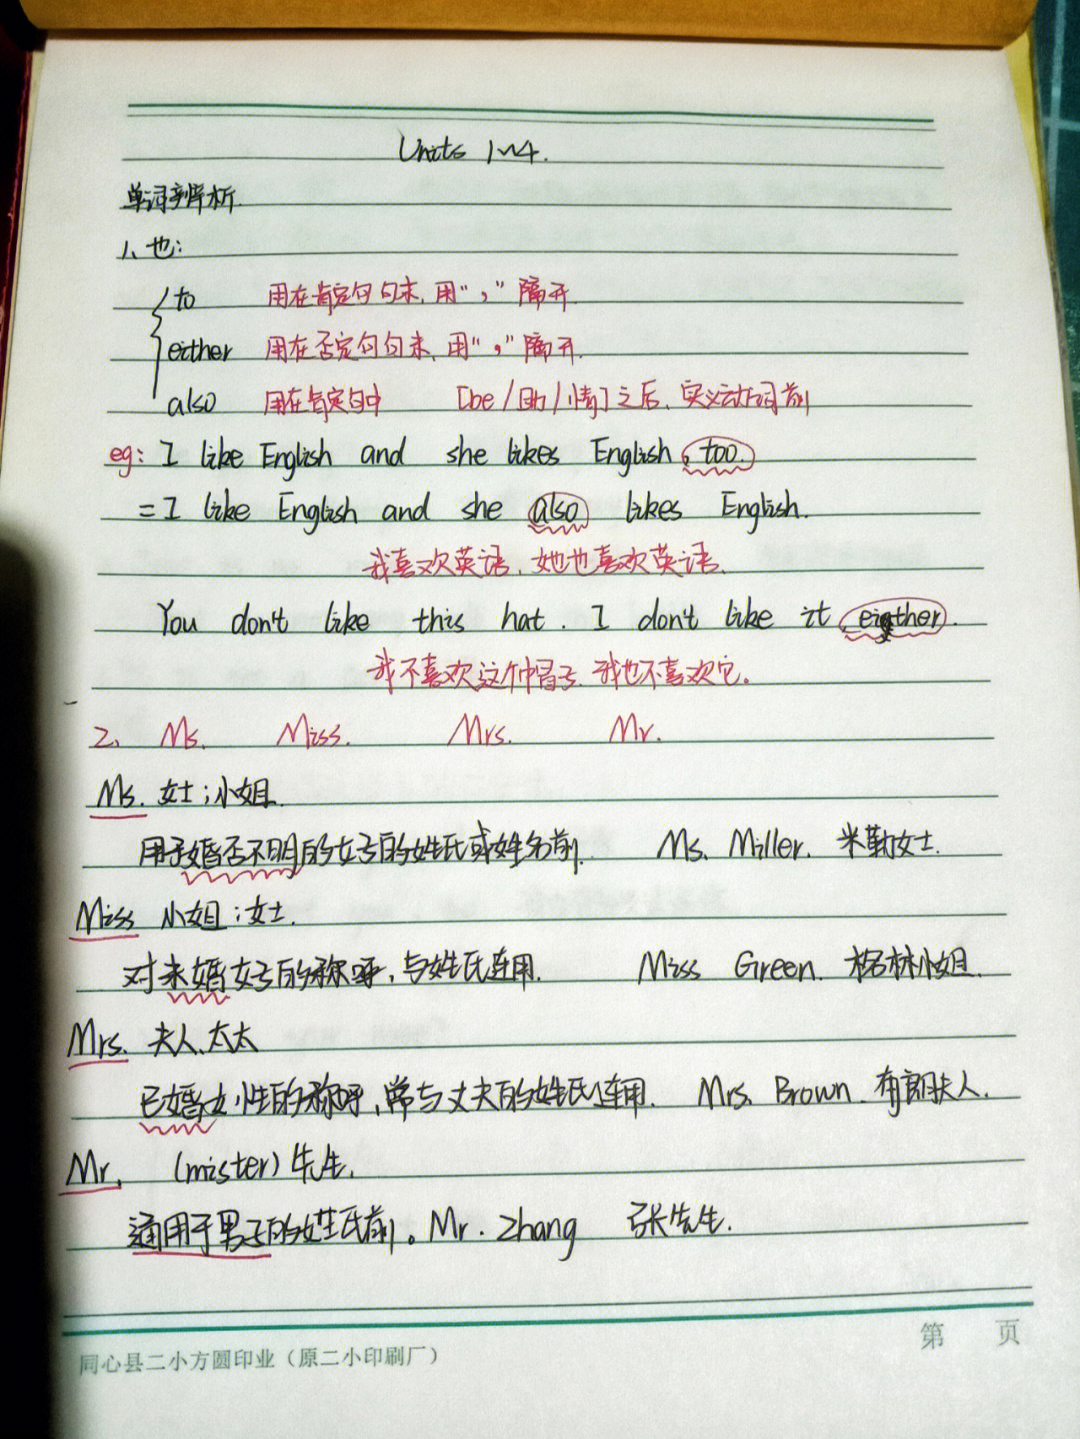 Units 1~4.
单词辨析.
1、也:
to 用在肯定句句末, 用“,”隔开.
either 用在否定句句末, 用“,”隔开.
also 用在肯定句中 [be/助/情]之后、实义动词前
eg: I like English and she likes English, too.
=I like English and she also likes English.
我喜欢英语, 她也喜欢英语.
You don't like this hat. I don't like it, either.
我不喜欢这个帽子, 我也不喜欢它。
2、 Ms. Miss. Mrs. Mr.
Ms. 女士;小姐.
用于婚否不明的女子的姓氏或姓名前. Ms. Miller. 米勒女士.
Miss 小姐;女士.
对未婚女子的称呼, 与姓氏连用. Miss Green. 格林小姐.
Mrs. 夫人、太太
已婚女性的称呼, 常与丈夫的姓氏连用. Mrs. Brown. 布朗夫人.
Mr. (mister) 先生.
通用于男子的姓氏前。Mr. Zhang 张先生.
第 页
同心县二小方圆印业（原二小印刷厂）